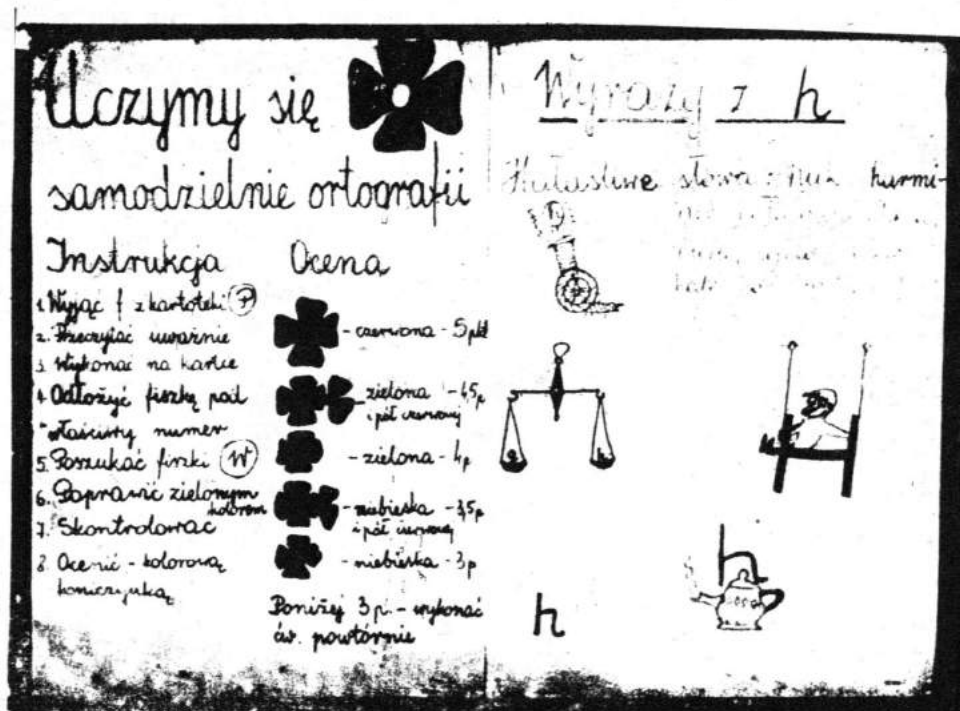 Uczymy się
samodzielnie ortografii
Instrukcja
1. Wyjąć f z kartoteki P
2. Przeczytać uważnie
3. Wykonać na kartce
4. Odłożyć fiszkę pod
właściwy numer
5. Poszukać fiszki W
6. Poprawić zielonym
kolorem
7. Skontrolować
8. Ocenić - kolorową
koniczynką
Ocena
- czerwona - 5 pkt
zielona - 4,5 p
i pół czerwonej
- zielona - 4 p
- niebieska - 3,5 p
i pół czerwonej
- niebieska - 3 p
Poniżej 3 p. - wykonać
ćw. powtórnie
Wyrazy z h
Hałaśliwe słowa: huk hurmi-
h
h